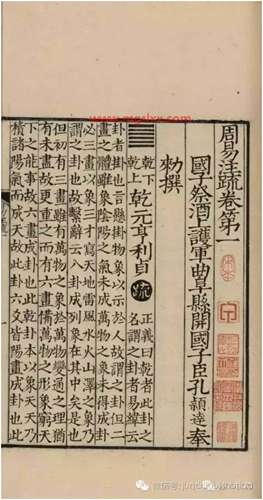 周易注疏卷第一
國子祭酒護軍曲阜縣開國子臣孔穎達奉
勑撰
乾下
乾上
乾元亨利貞
疏
正義曰乾者此卦之
名謂之卦者易緯云
卦者掛也言懸掛物象以示於人故謂之卦但二
畫之體雖象陰陽之氣未成萬物之象未得成卦
必三畫以象三才寫天地雷風水火山澤之象乃
謂之卦也故繫辭云八卦成列象在其中矣是也
但初有三畫雖有萬物之象於萬物變通之理猶
有未盡故更重之而有六畫備萬物之形象窮天
下之能事故六畫成卦也此乾卦本以象天天乃
積諸陽氣而成天故此卦六爻皆陽畫成卦也此